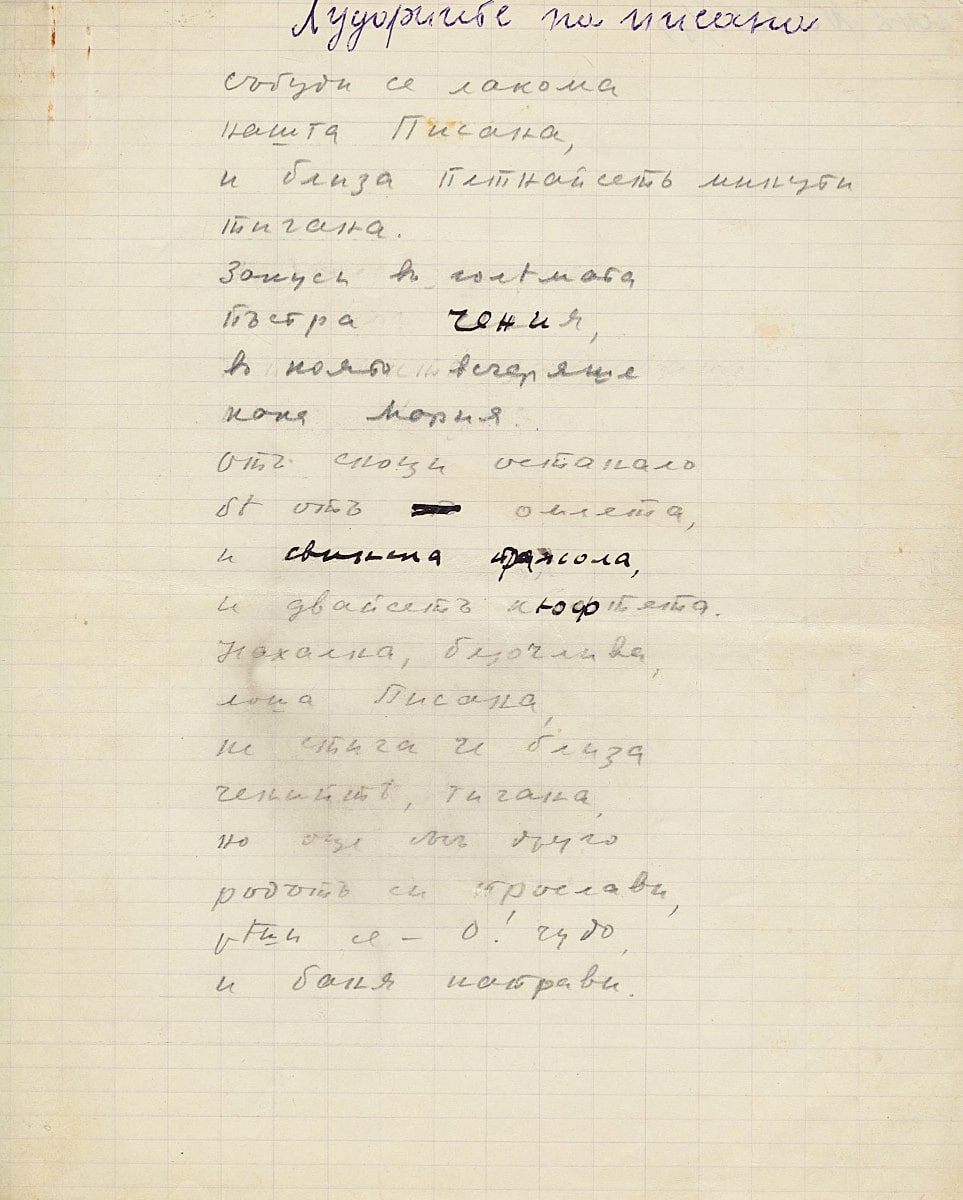 Лудориите на писана
събуди се лакома
нашта Писана,
и близа петнайсеть минути
тигана.
Закуси въ голѣмата
пъстра чения,
въ която вечеряше
кака Мария.
Отъ снощи останало
бѣ отъ омлета,
и свинска пражола,
и двайсеть кюфтета.
Нахална, блюдлива,
лоша Писана,
не стига че близа
чениитѣ, тигана,
но още съ друго
родътъ си прослави,
рѣши се – О! чудо,
и баня направи.